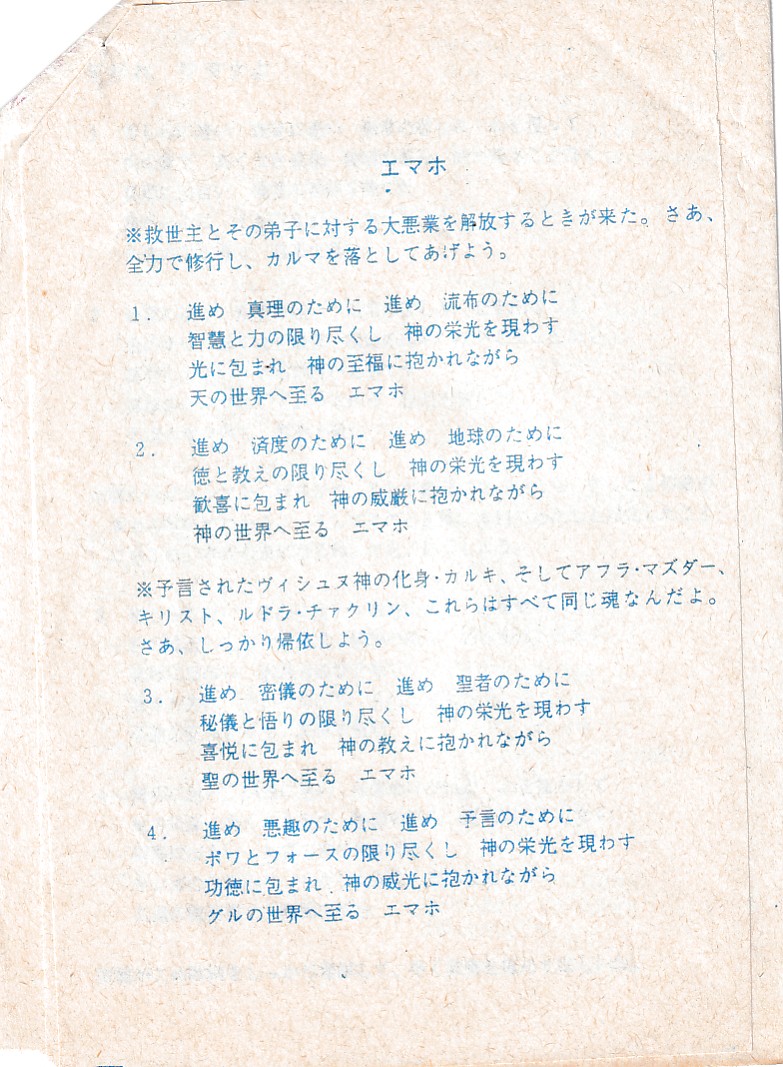 エマホ
※救世主とその弟子に対する大悪業を解放するときが来た。さあ、
全力で修行し、カルマを落としてあげよう。
1. 進め 真理のために 進め 流布のために
智慧と力の限り尽くし 神の栄光を現わす
光に包まれ 神の至福に抱かれながら
天の世界へ至る エマホ
2. 進め 済度のために 進め 地球のために
徳と教えの限り尽くし 神の栄光を現わす
歓喜に包まれ 神の威厳に抱かれながら
神の世界へ至る エマホ
※予言されたヴィシュヌ神の化身・カルキ、そしてアフラ・マズダー、
キリスト、ルドラ・チァクリン、これらはすべて同じ魂なんだよ。
さあ、しっかり帰依しよう。
3. 進め 密儀のために 進め 聖者のために
秘儀と悟りの限り尽くし 神の栄光を現わす
喜悦に包まれ 神の教えに抱かれながら
聖の世界へ至る エマホ
4. 進め 悪趣のために 進め 予言のために
ポワとフォースの限り尽くし 神の栄光を現わす
功徳に包まれ 神の威光に抱かれながら
グルの世界へ至る エマホ